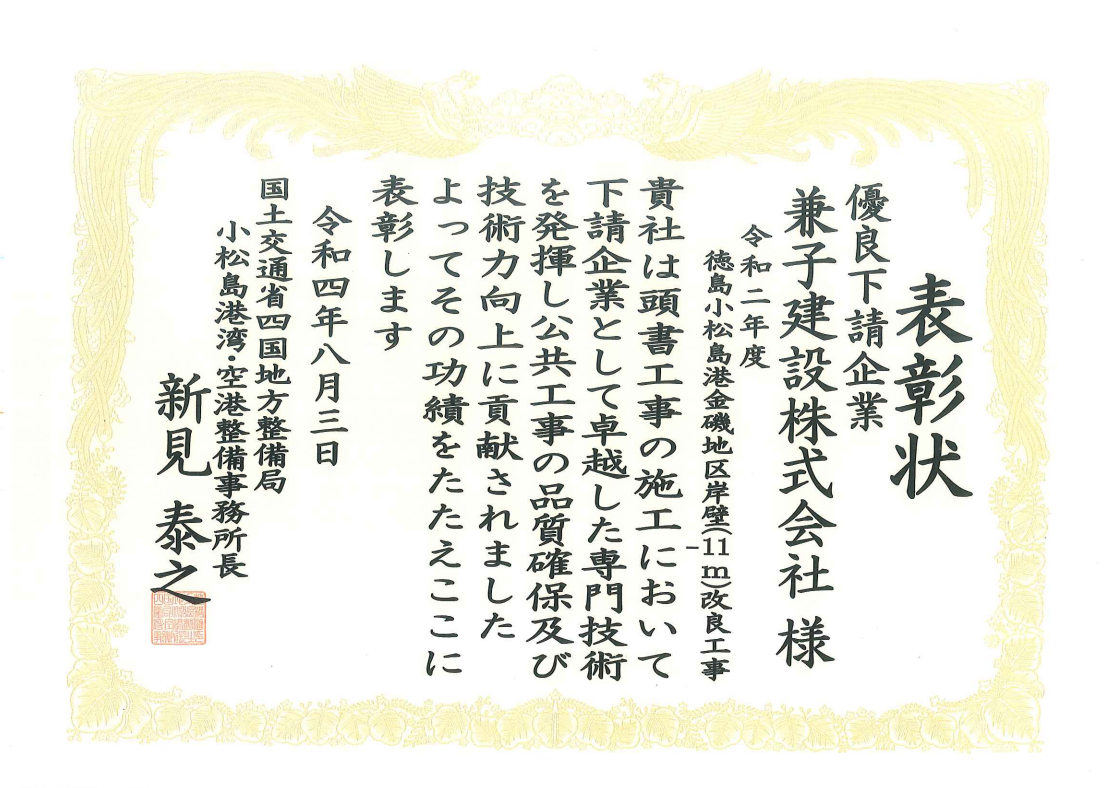 表彰状
優良下請企業
兼子建設株式会社 様
令和二年度
徳島小松島港金磯地区岸壁(-11m)改良工事
貴社は頭書工事の施工において
下請企業として卓越した専門技術
を発揮し公共工事の品質確保及び
技術力向上に貢献されました
よってその功績をたたえここに
表彰します
令和四年八月三日
国土交通省四国地方整備局
小松島港湾・空港整備事務所長
新見 泰之